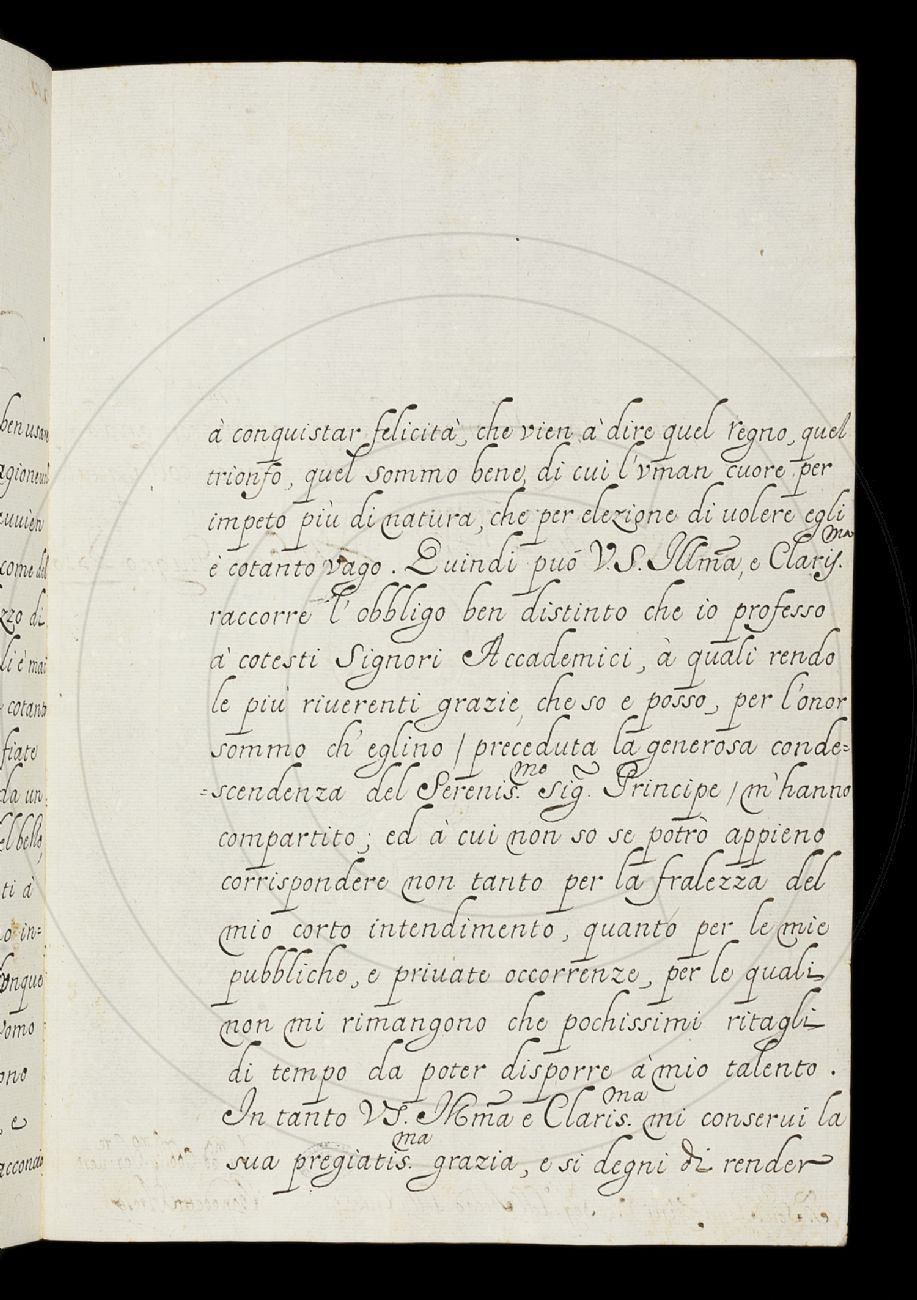 à conquistar felicità, che vien à dire quel regno, quel
trionfo, quel sommo bene, di cui l'vman cuore per
impeto più di natura, che per elezione di uolere egli
è cotanto vago. Quindi può V.S. Illma, e Claris.ma
raccorre l'obbligo ben distinto che io professo
à cotesti Signori Accademici, à quali rendo
le più riuerenti grazie, che so e posso, per l'onor
sommo ch'eglino / preceduta la generosa conde=
=scendenza del Serenis.mo Sig. Principe / m'hanno
compartito; ed à cui non so se potrò appieno
corrispondere non tanto per la fralezza del
mio corto intendimento, quanto per le mie
pubbliche, e priuate occorrenze, per le quali
non mi rimangono che pochissimi ritagli
di tempo da poter disporre à mio talento.
In tanto V.S. Illma e Claris.ma mi conserui la
sua pregiatis.ma grazia, e si degni di render
ben usar
come del
zzo di
li è mai
cotanto
fiate
da un
el bello,
ti à
o in=
onque
vomo
ono
e